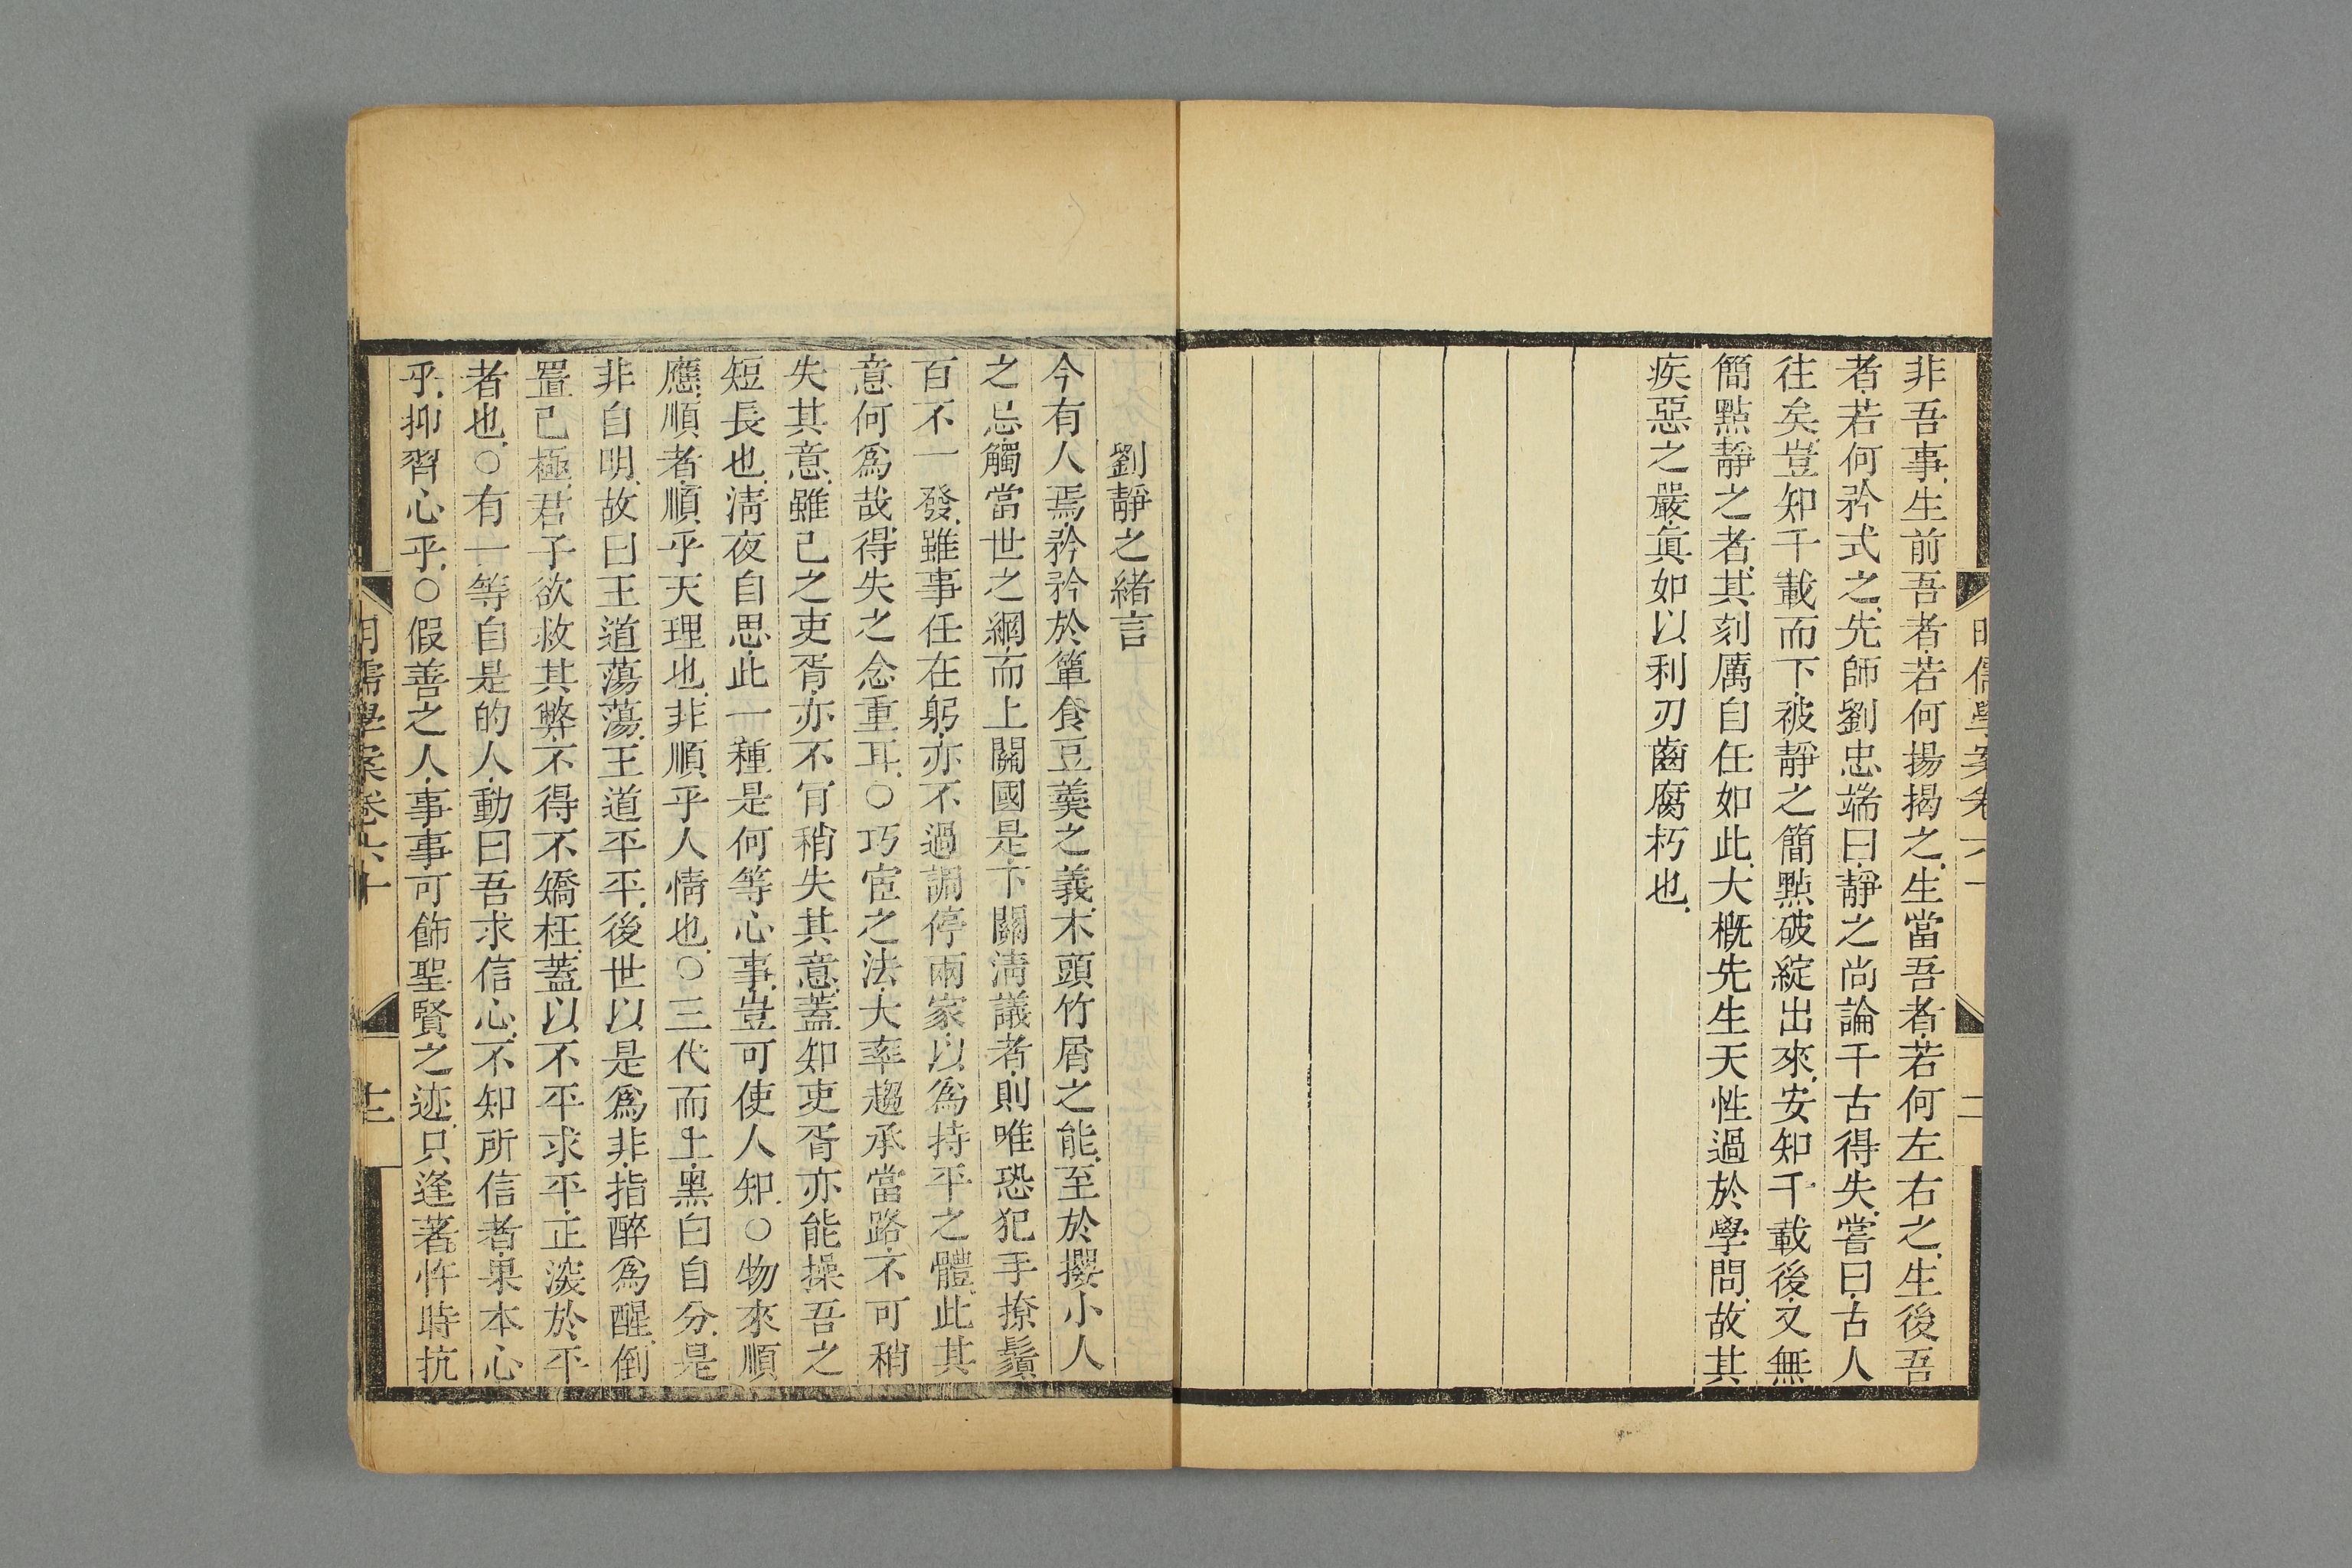 非吾事生前吾者若何揚揭之生當吾者若何左右之生後吾
者若何矜式之先師劉忠端曰靜之尚論千古得失嘗曰古人
往矣豈知千載而下被靜之簡點破綻出來安知千載後又無
簡點靜之者其刻厲自任如此大槪先生天性過於學問故其
疾惡之嚴眞如以利刃齒腐朽也
劉靜之緒言
今有人焉矜矜於簞食豆羹之義木頭竹屑之能至於攖小人
之忌觸當世之網而上關國是下關淸議者則唯恐犯手撩鬚
百不一發雖事任在躬亦不過調停兩家以爲持平之體此其
意何爲哉得失之念重耳○巧宦之法大率趨承當路不可稍
失其意雖己之吏胥亦不肎稍失其意蓋知吏胥亦能操吾之
短長也淸夜自思此一種是何等心事豈可使人知○物來順
應順者順乎天理也非順乎人情也○三代而上黑白自分是
非自明故曰王道蕩蕩王道平平後世以是爲非指醉爲醒倒
置已極君子欲救其弊不得不矯枉蓋以不平求平正深於平
者也○有一等自是的人動曰吾求信心不知所信者果本心
乎抑習心乎○假善之人事事可飾聖賢之迹只逢著忤時抗
明儒學案卷六十